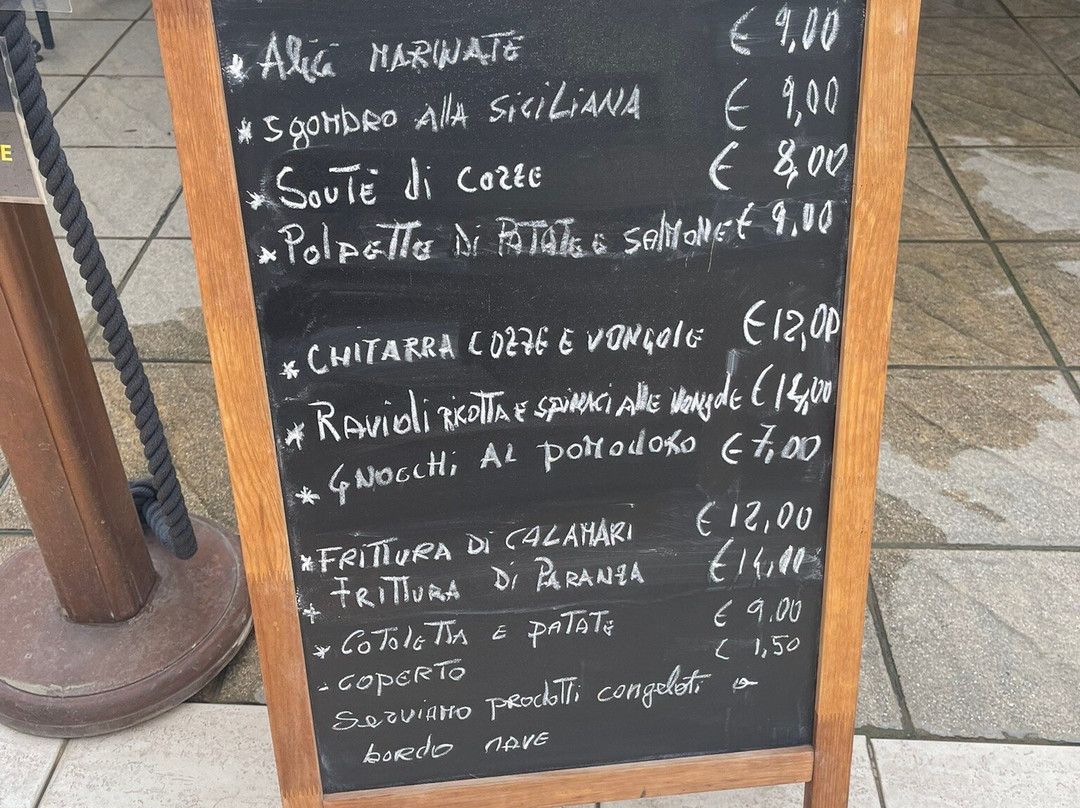 * Alici MARINATE € 9,00
* SgOMBRO Alla SiCiLiANA € 9,00
* SOUTÈ di COZZE € 8,00
* POlPETTE Di PATATE e SAlMONE € 9,00
* CHITARRA COZZE E VONGOLE € 12,00
* RAVioli RICOTTA E SPINACi Alle VONgole €
* GNOCCHi AL POMODORO € 7,00
* FRITTURA Di CALAMARI € 12,00
* FRITTURA Di PARANZA € 14,00
* COTOLETTA E PATATE € 9,00
- COPERTO € 1,50
Serviamo prodotti congelati a
bordo NAVE
E